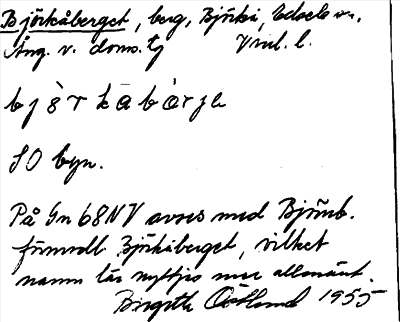 Björkåberget, berg, Björkå, Edsele sn,
Ång. v. doms. tg Vnl. l.
b j ö r k å b à r j e
SO byn.
På Gn 68 NV avses med Björnb.
förmodl. Björkåberget, vilket
namn lär nyttjas mer allmänt.
Birgitta Östlund 1955